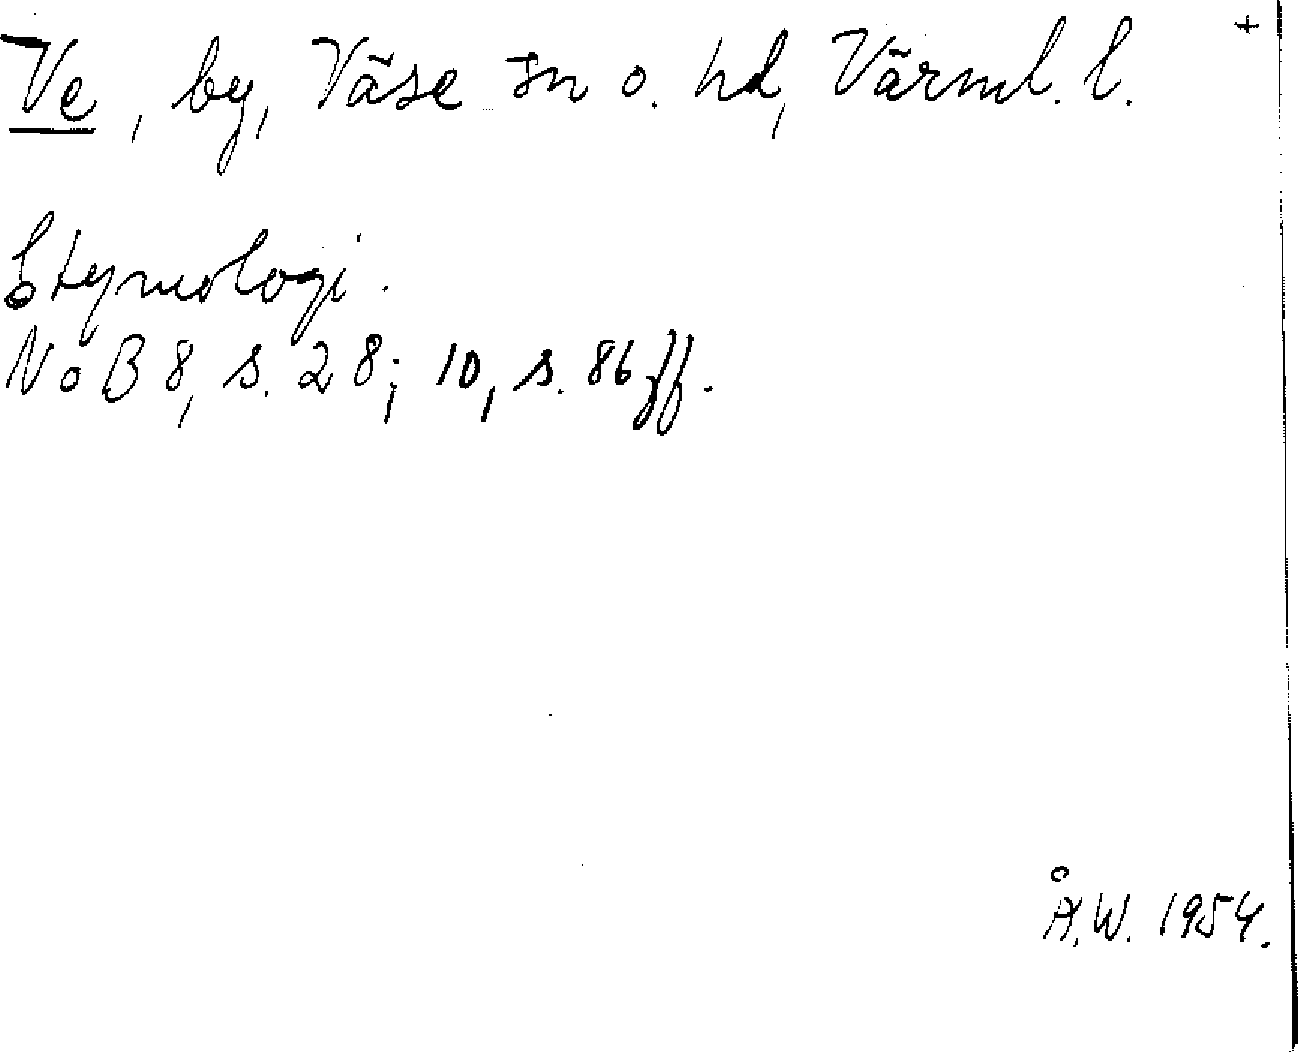 Ve, by, Väse sn o. hd, Värml. l. +
Etymologi.
NoB 8, s. 28; 10, s. 86 ff.
Å.W. 1954.